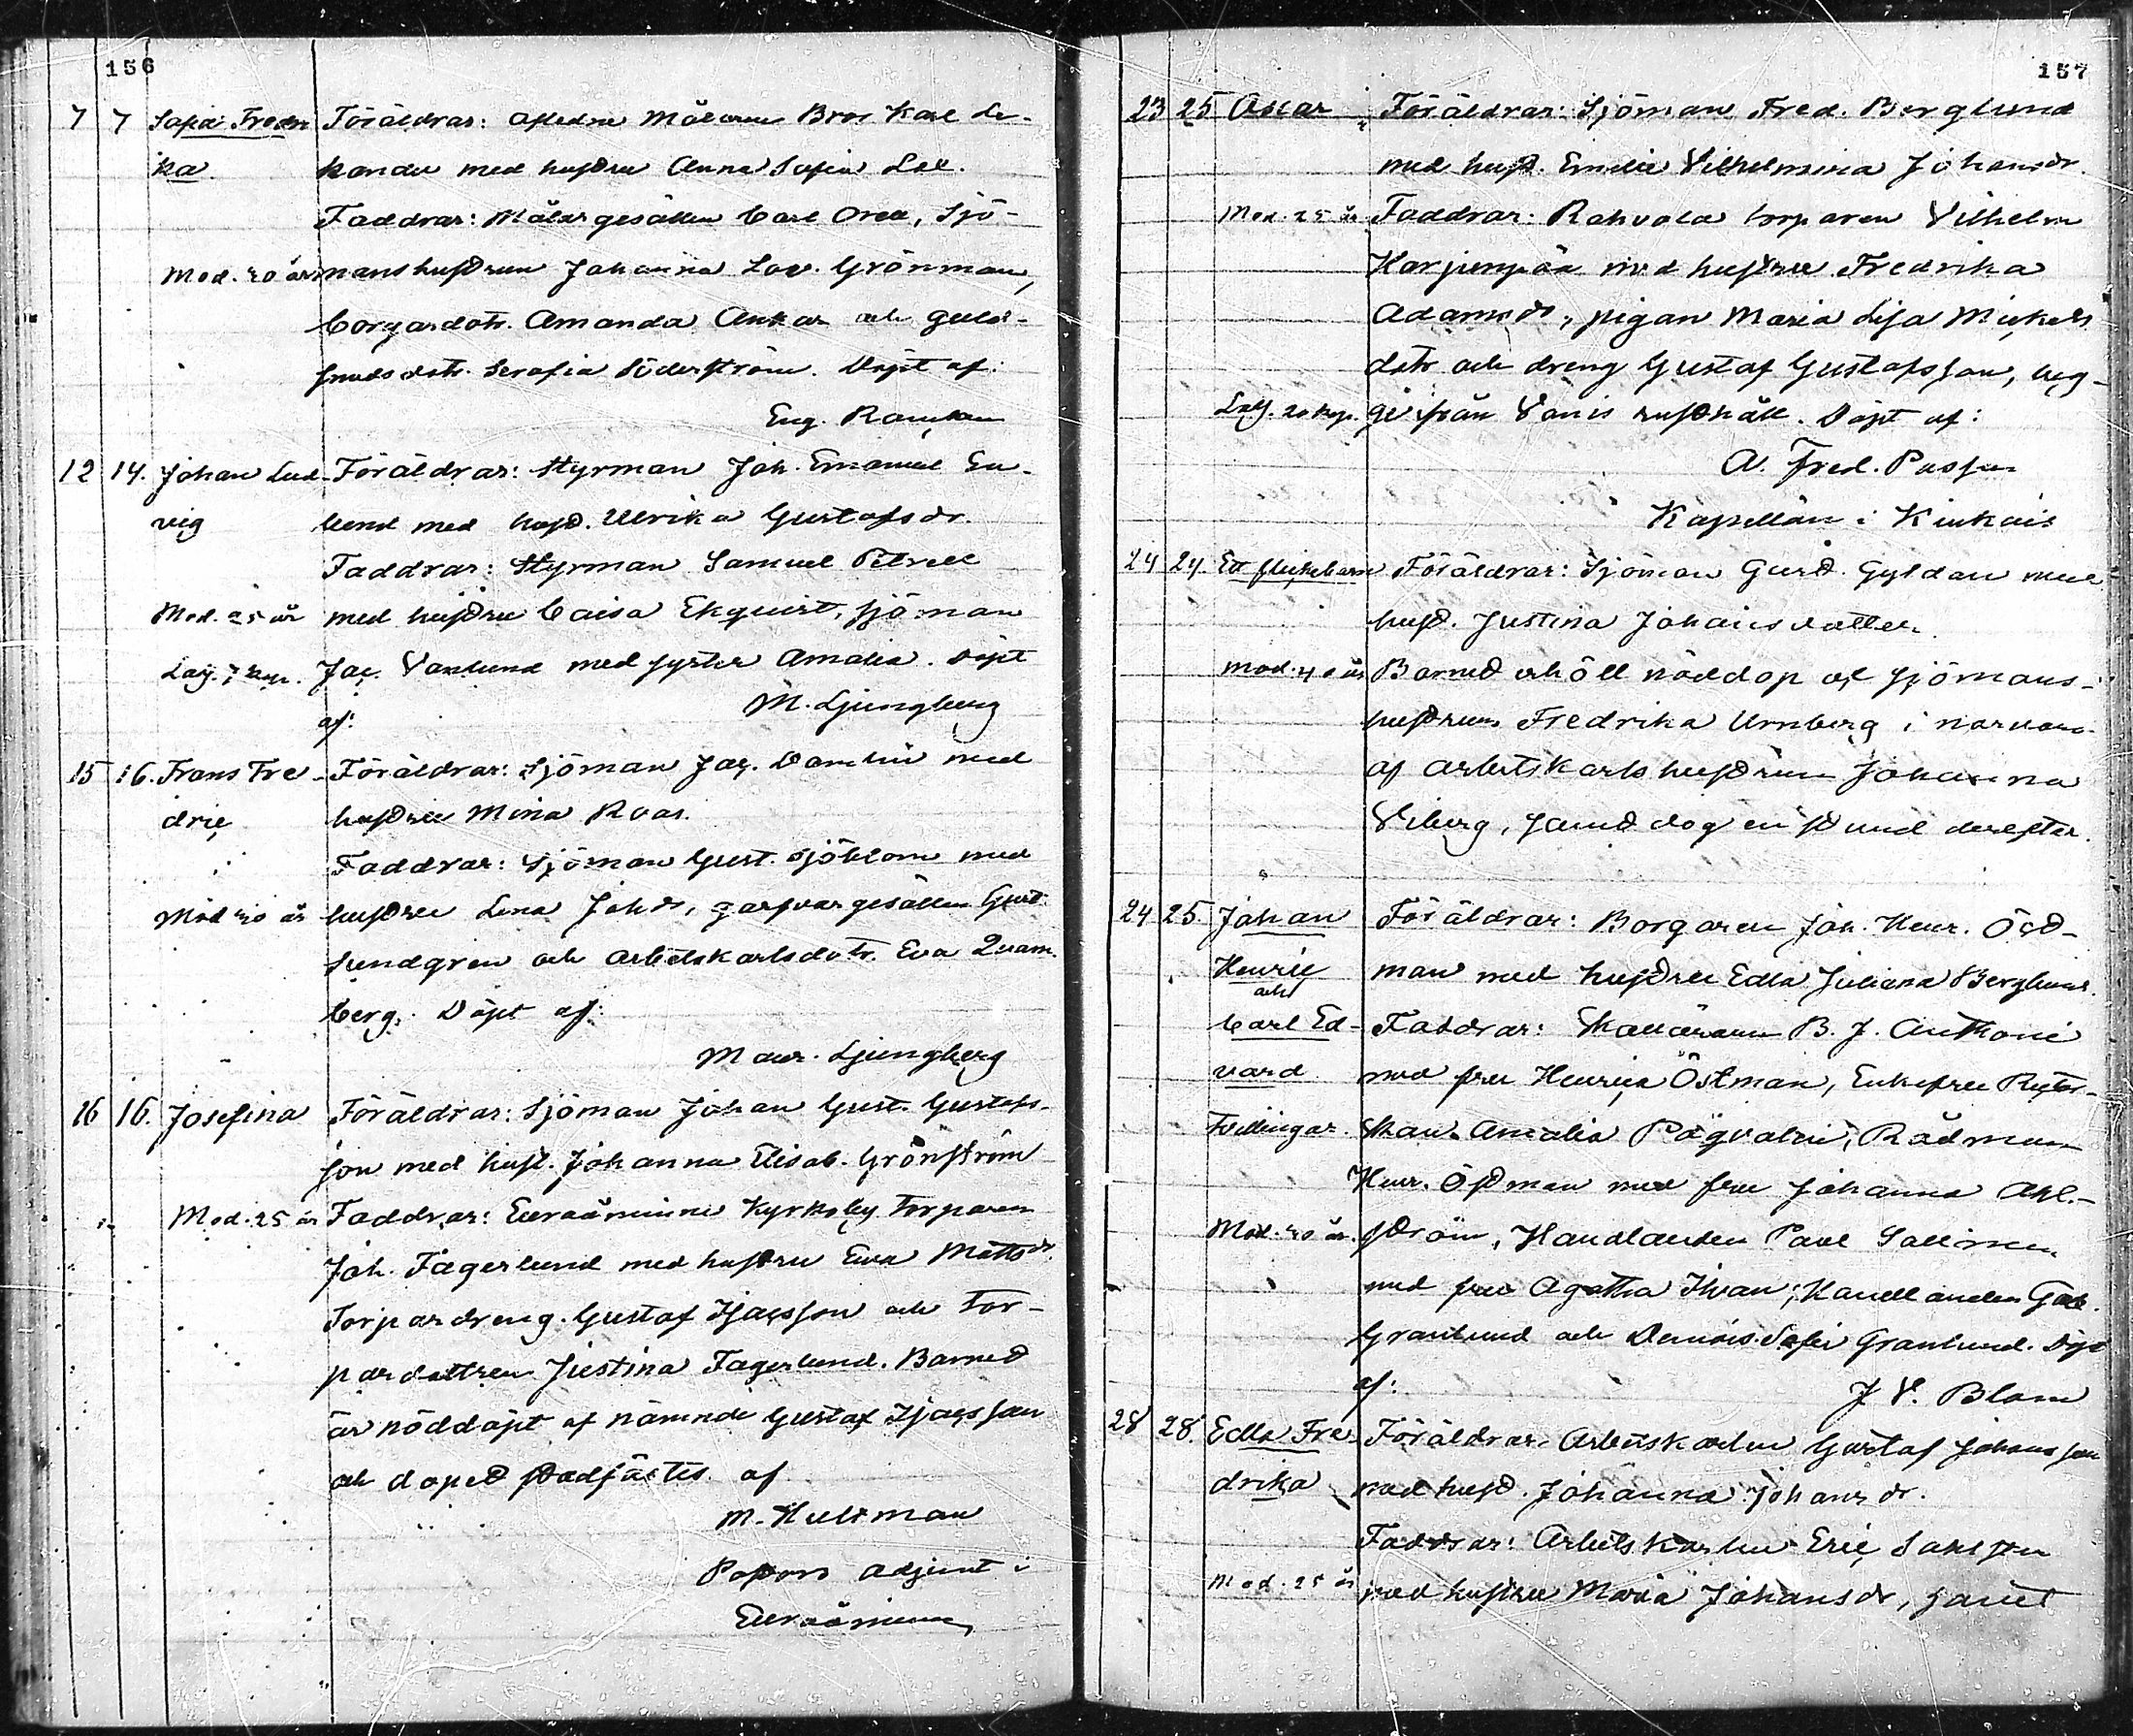 156
7 7 Sofia Fredri Föräldrar: aflidne Målaren Bror Karl Le-
ka. kander med hustru Anna Sofia Lol.
Faddrar: Målargesällen Carl Orell, Sjö-
Mod. 20 år manshustrun Johanna Lov. Grönman,
borgardotr. Amanda Ankar och guld-
smedsdotr. Serafia Söderström. Döpt af:
Eug.
12 14. Johan Lud- Föräldrar: Styrman Joh. Emanuel En-
vig lund med hust. Ulrika Gustafsdr.
Faddrar: Styrman Samuel Petrell
Mod. 25 år med hustru Caisa Ekquist, sjöman
Läg. 7 kop. Jac. Vanlund med syster Amalia. Döpt
af: M. Ljungberg
15 16. Frans Fre- Föräldrar: Sjöman Jac. Damlin med
dric hustru Mina Roos.
Faddrar: Sjöman Gust. Sjöblom med
Mod 20 år hustru Lena Johdr, garfvargesällen Gust.
Sundgren och arbetskarlsdotr. Eva Quam-
berg. Döpt af:
Maur. Ljungberg
16 16. Josefina Föräldrar: Sjöman Johan Gust. Gustafs-
son med hust. Johanna Elisab. Grönström
Mod. 25 år Faddrar: Euraåminne Kyrkoby torparen
Joh. Fagerlund med hustru Eva Mattsdr.
Torpardreng. Gustaf Isacsson och tor-
pardottren Justina Fagerlund. Barnet
är nöddöpt af nämnde Gustaf Isacsson
och dopet stadfästes af
M. Hultman
Pastors adjunt i
Euraåminne
157
23 25 Oscar Föräldrar: Sjöman Fred. Berglund
med hust. Emilie Vilhelmina Johansdr.
Mod. 25 år Faddrar: Rahvola torparen Vilhelm
Karjunpää med hustru Fredrika
Adamsdr, pigan Maria Lisa Mickels
dotr och dreng Gustaf Gustafsson, beg-
Läg. 20 kop. ge från Vanis rusthåll. Döpt af:
A. Fred.
Kapellan i Kiukais
24 24. Ett flickebarn Föräldrar: Sjöman Gust. Gyldan med
hust. Justina Johansdotter.
Mod. 40 år Barnet erhöll nöddop af sjömans-
hustrun Fredrika Urnberg i närvaro
af arbetskarlshustrun Johanna
Viberg, samt dog en stund derefter.
24 25. Johan Föräldrar: Borgaren Joh. Henr. Öst-
Henric man med hustru Edla Juliana Berglund.
och
Carl Ed- Faddrar: B. J. Anthoni
vard med fru Henrica Östman, Enkefru Ryter-
Tvillingar. skan Amalia Rådman
Henr. Östman med fru Johanna Ahl-
Mod. 20 år. ström, Handlanden Paul Salonen
med fru Agatha Ihran; Handlanden Gab.
Granlund och Demois. Sofi Granlund. Döpt
af: J V. Blom
28 28. Edla Fre- Föräldrar: Arbetskarlen Gustaf Johansson
drika med hust. Johanna Johansdr.
Faddrar: Arbetskarlen Eric Saksson
Mod. 25 år med hustru Maria Johansdr, samt